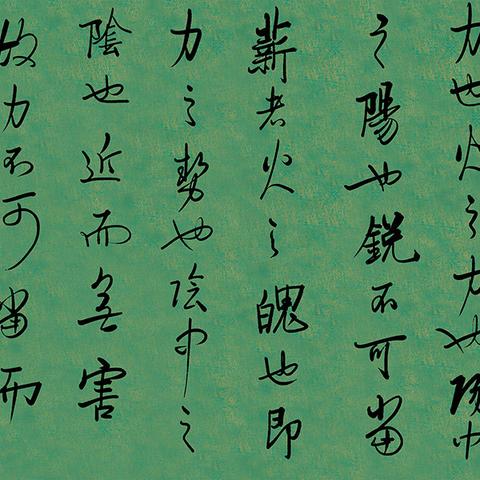 力也火之力也陰中
之陽也銳不可當
薪者火之魄也即
力之勢也陰中之
陰也近而無害
故力不可當而